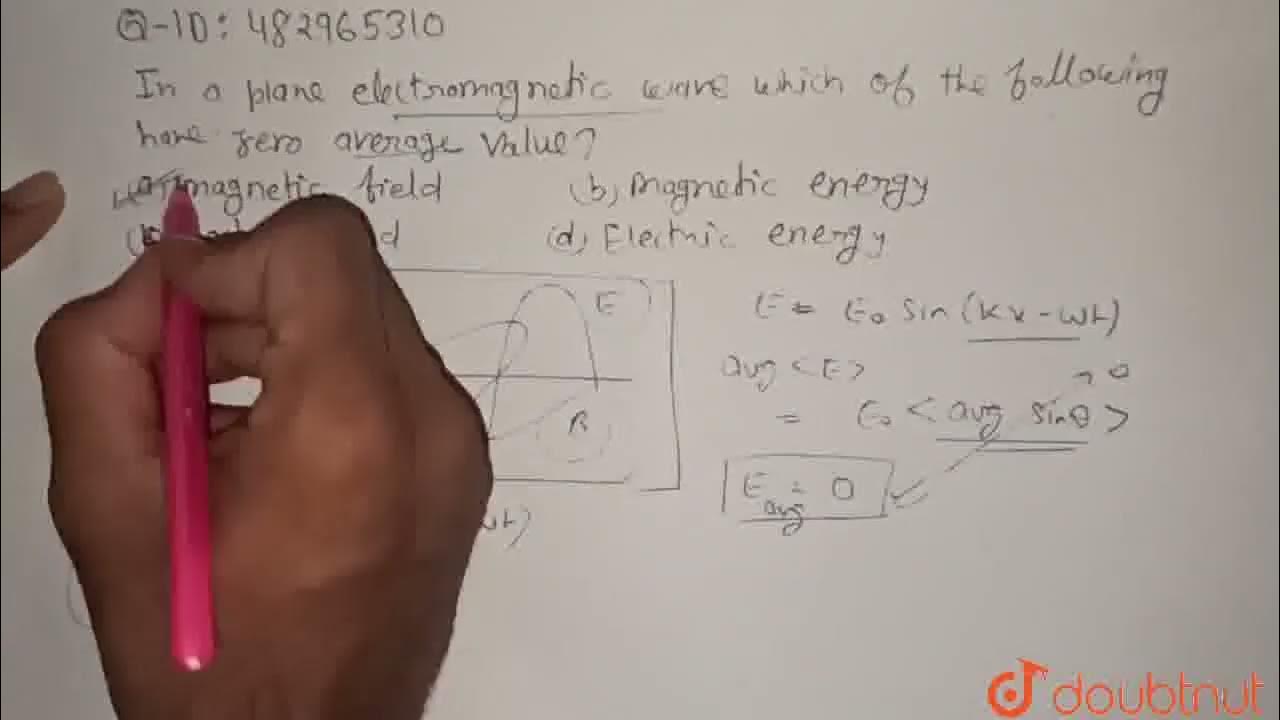 Q-ID: 482965310
In a plane electromagnetic wave which of the following
have zero average value?
magnetic field (b) Magnetic energy
(d) Electric energy
E
B
E = E₀ sin (kx - ωt)
avg <E> → 0
= E₀ < avg sinθ >
E avg = 0
ωt)
doubtnut